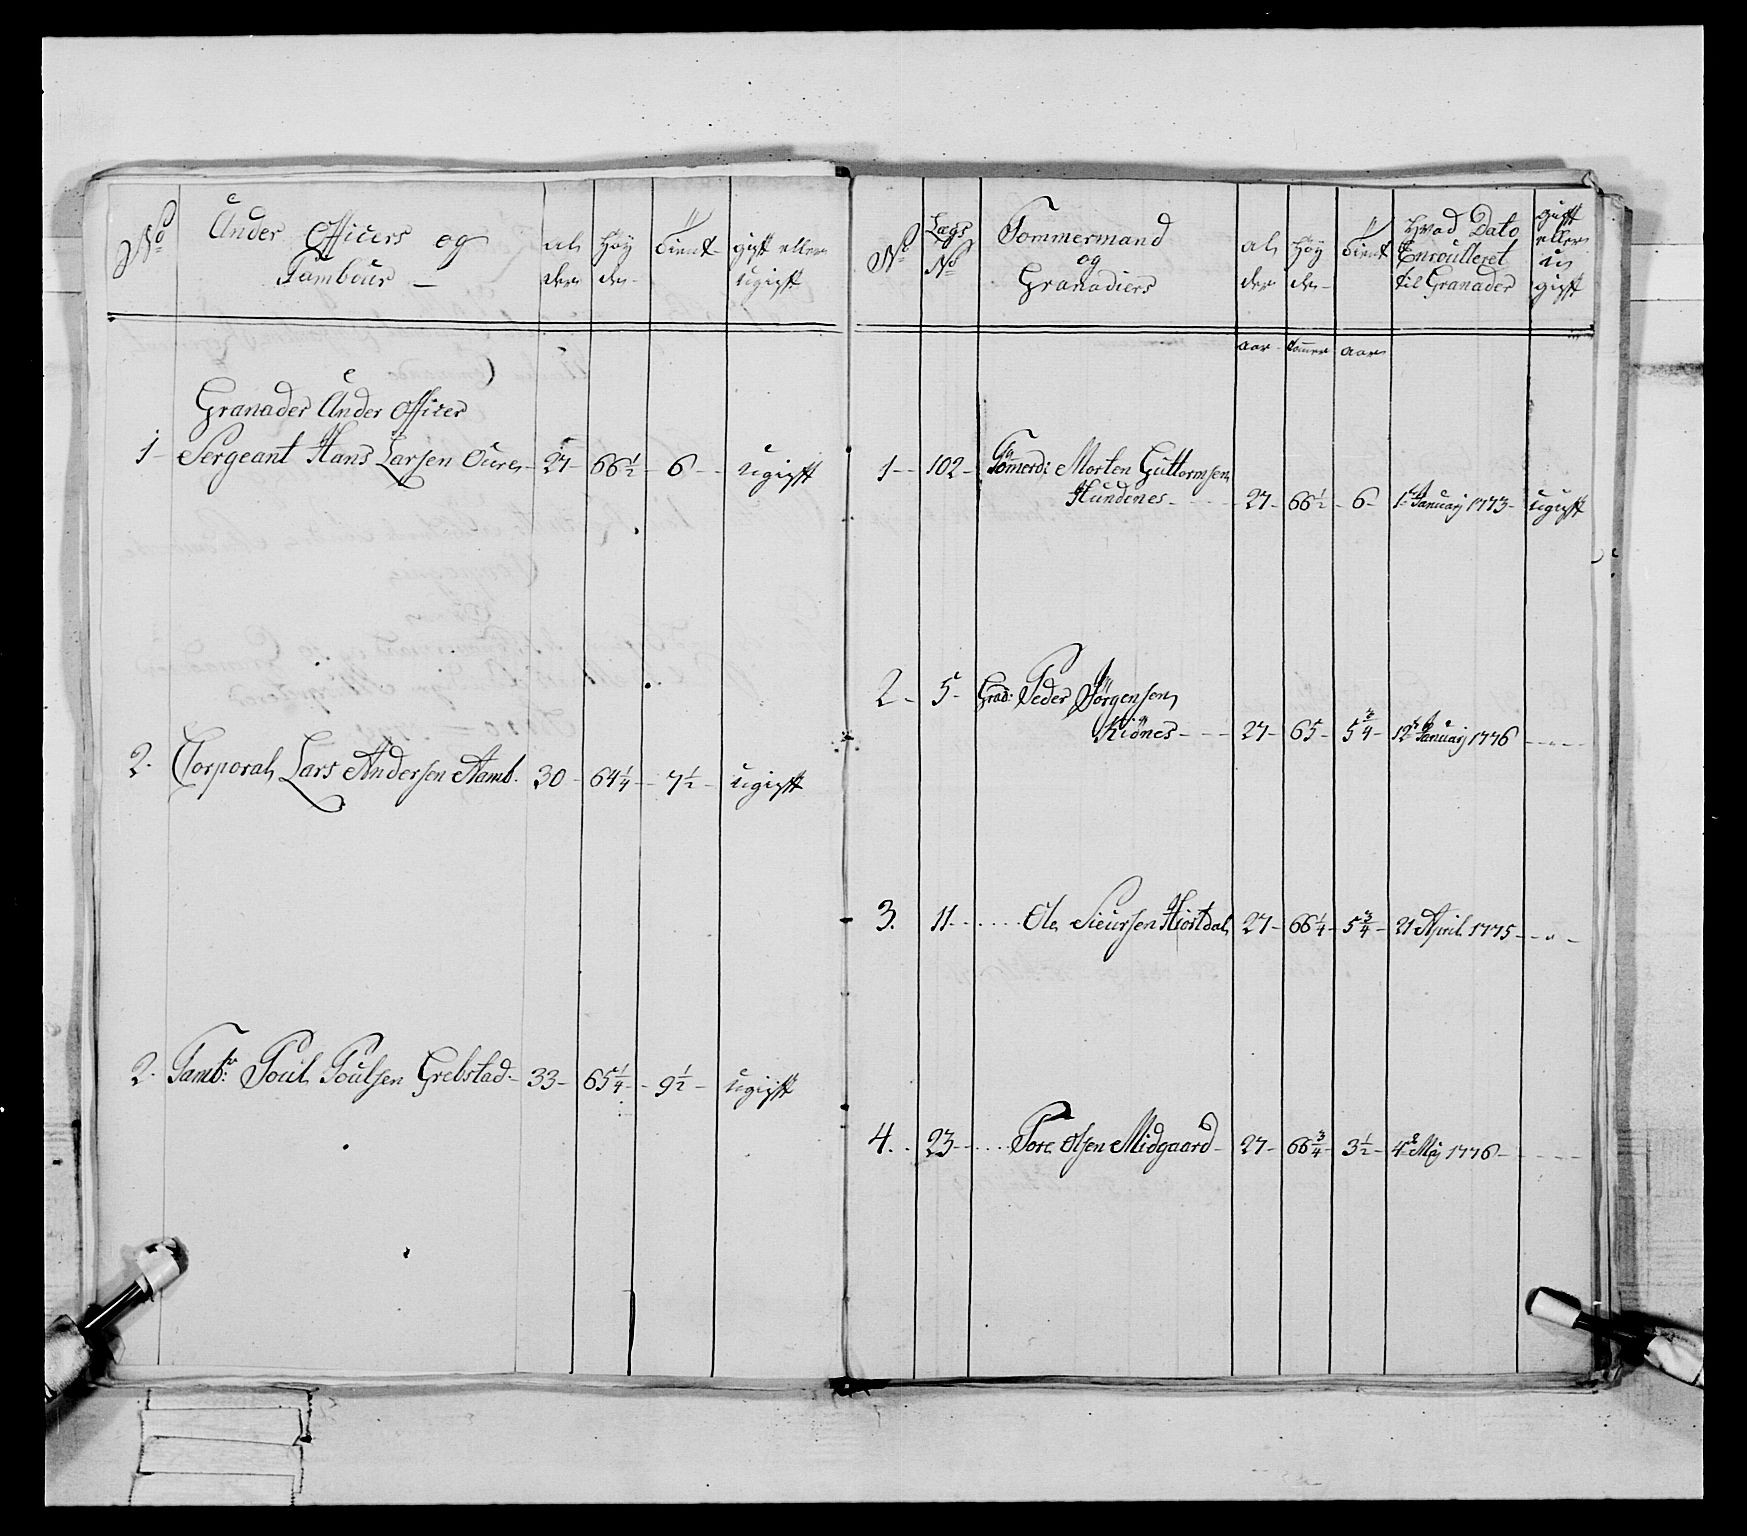 No
Under Officers og
Tambour –
al
der
Höy
de
Tient
gift eller
ugift
Granader Under Officer
1 – Sergeant Hans Larsen Oure – 27 – 66½ – 6 – ugift
2. Corporal Lars Andersen Aamb. 30 – 64¼ – 7½ – ugift
2. Tambr: Poul Poulsen Grebstad – 33 – 65¼ – 9½ – ugift
No
Lægs
No
Tømmermand
og
Granadiers
al
der
Höy
de –
Tient
Hvad Dato
Enroulleret
til Granader
gift
eller
u
gift
aar tommer aar
1 – 102 – Tømerd: Morten Guttormsen
Hundenes – 27 – 66½ – 6 – 1te Januarj 1773 – ugift
2 – 5 – Grad: Peder Jörgensen
Kiönes – 27 – 65 – 5¾ – 12te Januarj 1776 – – –
3. 11 – . . . . Ole Sieursen Hiortdal 27 – 66¼ – 5¾ – 21 April 1775 – – –
4. . 23 – . . . Tore Olsen Midgaard – 27 – 66¾ – 3½ – 4de Maj 1776 – – –